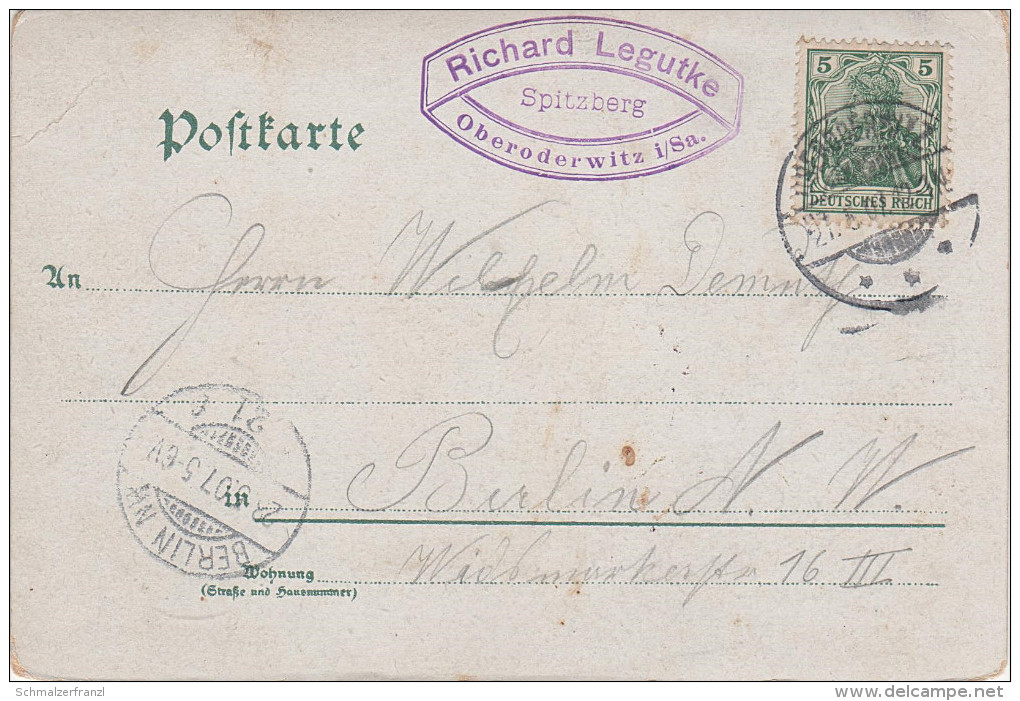 Richard Legutke
Spitzberg
Oberoderwitz i/Sa.
5 5
DEUTSCHES REICH
Postkarte
An Herrn Wilhelm
in Berlin N. W.
BERLIN NW
5-6V
21
Wohnung 16 III
(Straße und Hausnummer)
Schmalzerfranzl
www.delcampe.net